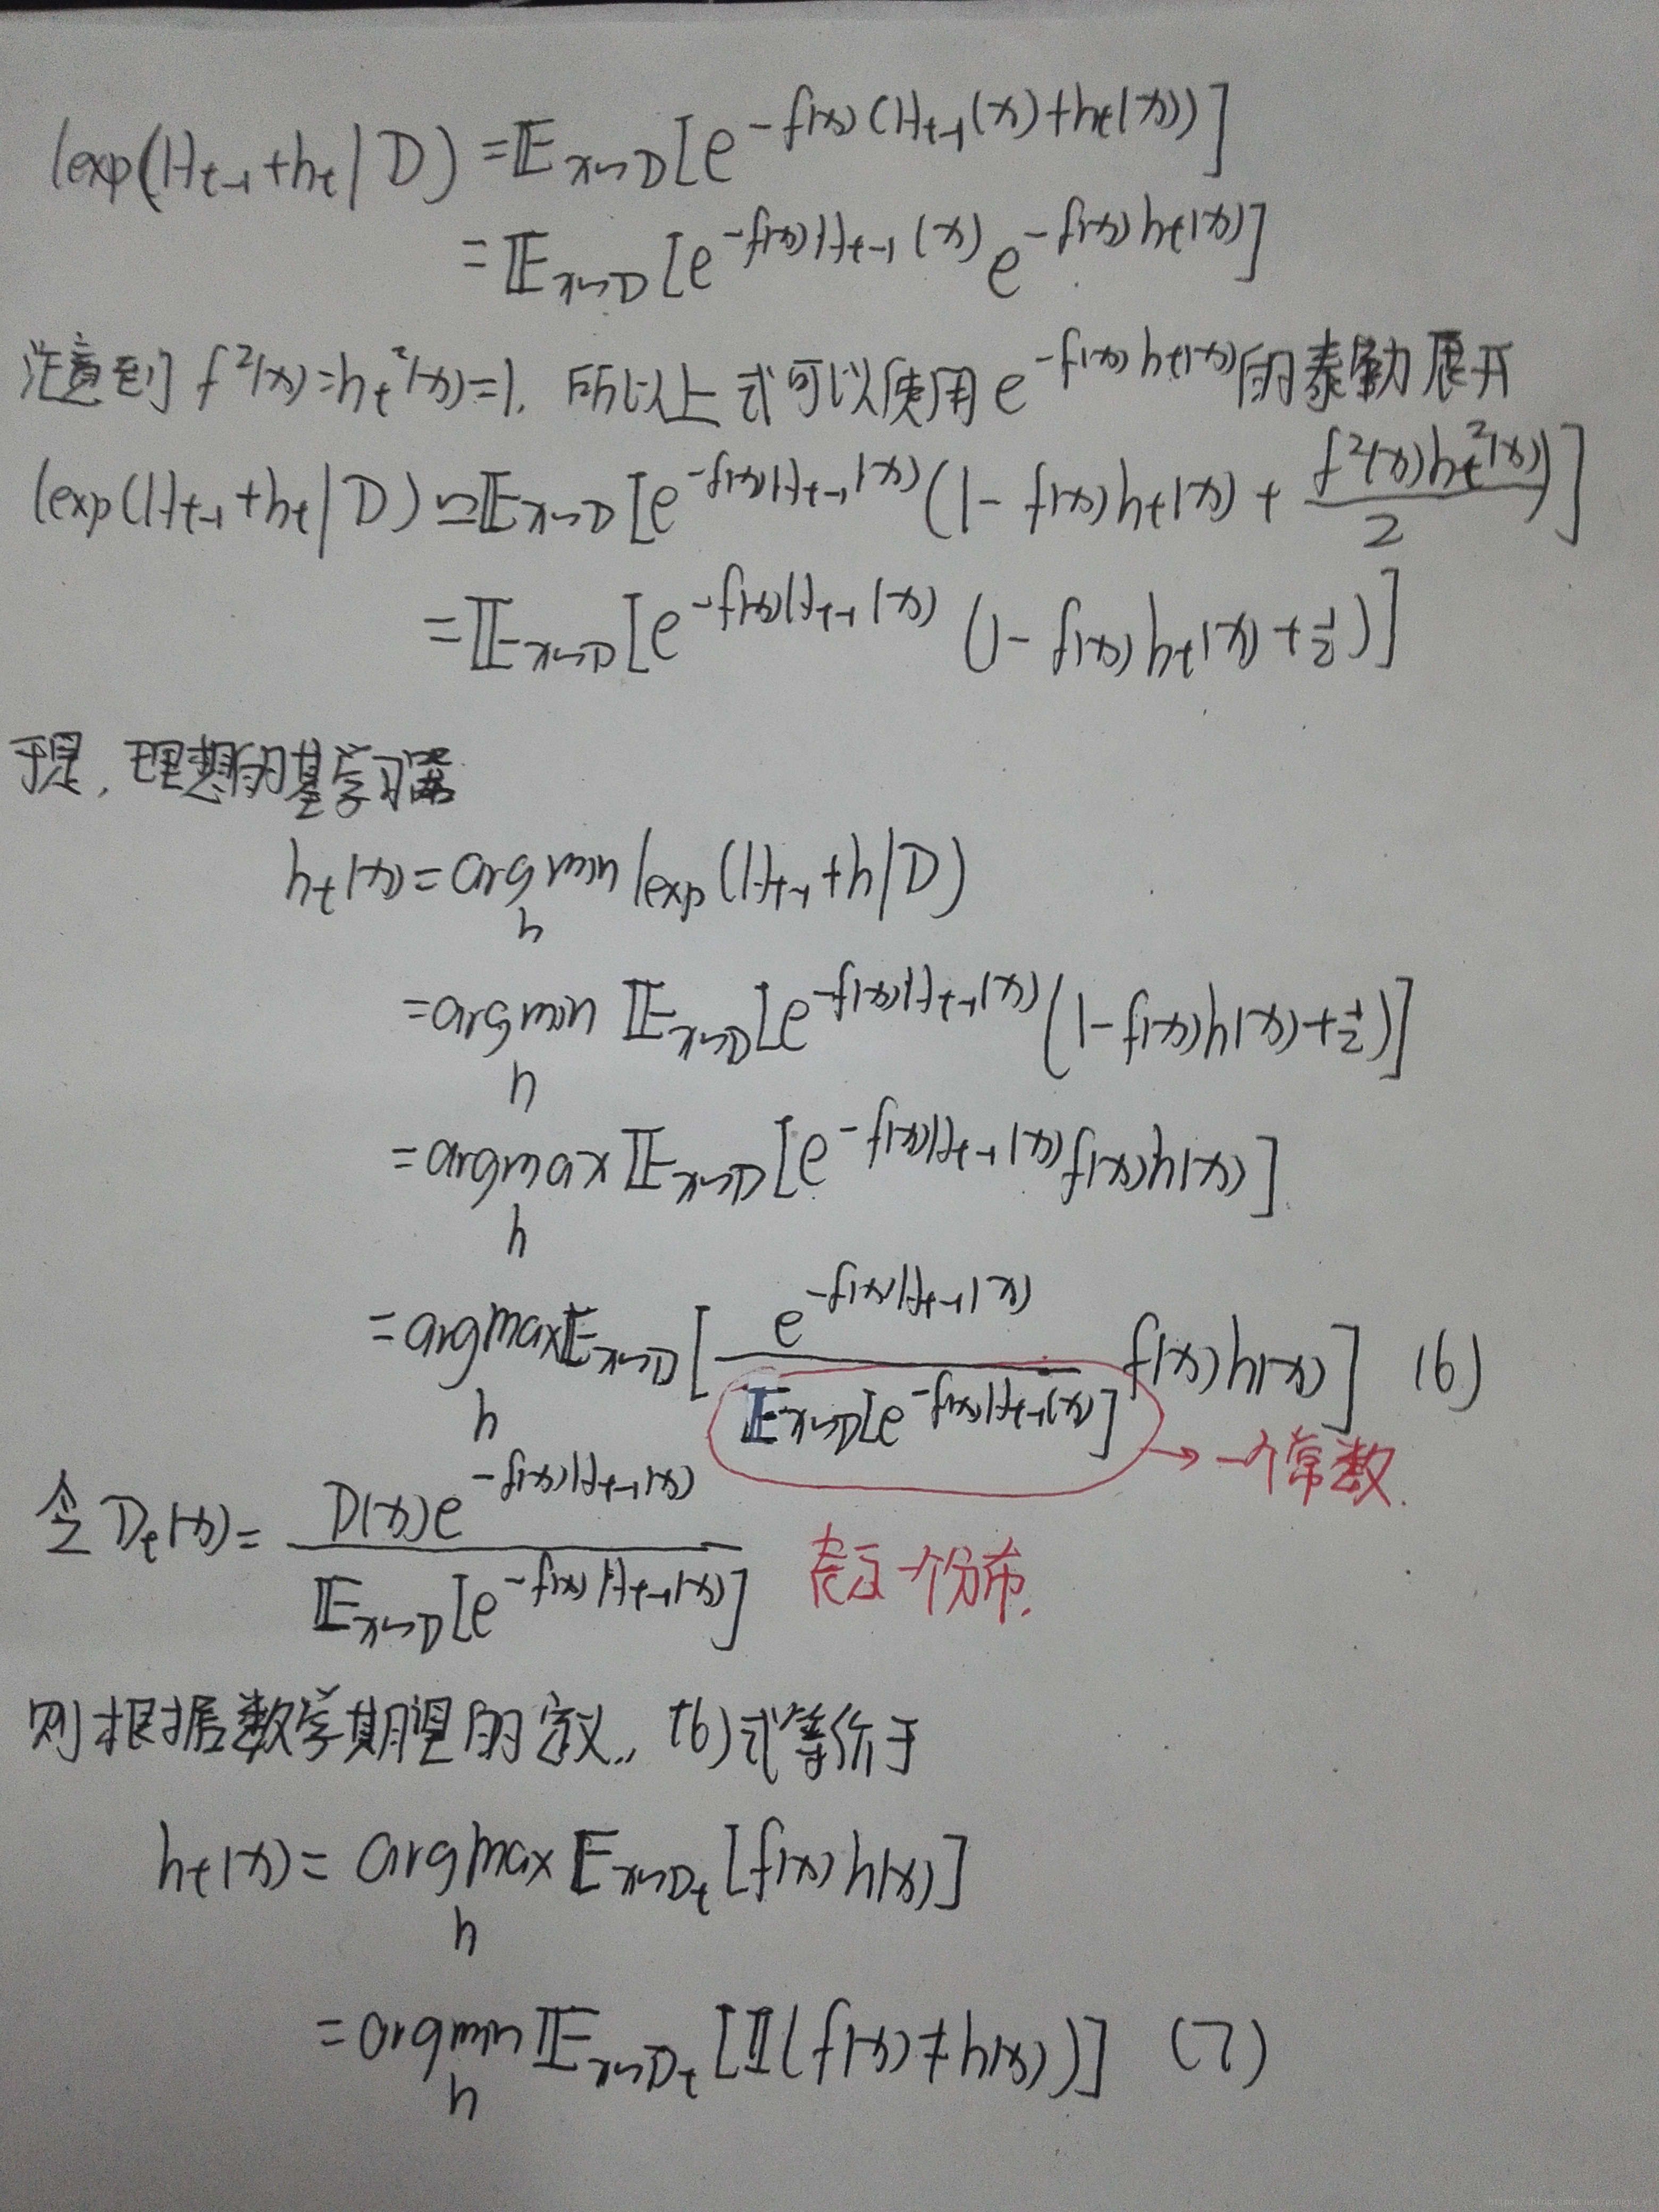 ℓexp(H_{t-1}+h_t|D) = 𝔼_{x~D}[e^{-f(x)(H_{t-1}(x)+h_t(x))}]
= 𝔼_{x~D}[e^{-f(x)H_{t-1}(x)} e^{-f(x)h_t(x)}]
注意到 f²(x)=h_t²(x)=1. 所以上式可以使用 e^{-f(x)h_t(x)} 的泰勒展开
ℓexp(H_{t-1}+h_t|D) ≃ 𝔼_{x~D}[e^{-f(x)H_{t-1}(x)}(1-f(x)h_t(x)+\frac{f²(x)h_t²(x)}{2})]
= 𝔼_{x~D}[e^{-f(x)H_{t-1}(x)}(1-f(x)h_t(x)+\frac{1}{2})]
于是, 理想的基学习器
h_t(x) = argmin_h ℓexp(H_{t-1}+h|D)
= argmin_h 𝔼_{x~D}[e^{-f(x)H_{t-1}(x)}(1-f(x)h(x)+\frac{1}{2})]
= argmax_h 𝔼_{x~D}[e^{-f(x)H_{t-1}(x)} f(x)h(x)]
= argmax_h 𝔼_{x~D}[\frac{e^{-f(x)H_{t-1}(x)}}{𝔼_{x~D}[e^{-f(x)H_{t-1}(x)}]} f(x)h(x)] (6)
→ 一个常数.
令 D_t(x) = \frac{D(x)e^{-f(x)H_{t-1}(x)}}{𝔼_{x~D}[e^{-f(x)H_{t-1}(x)}]} 表示一个分布.
则根据数学期望的定义, (6)式等价于
h_t(x) = argmax_h 𝔼_{x~D_t}[f(x)h(x)]
= argmin_h 𝔼_{x~D_t}[𝕀(f(x)≠h(x))] (7)